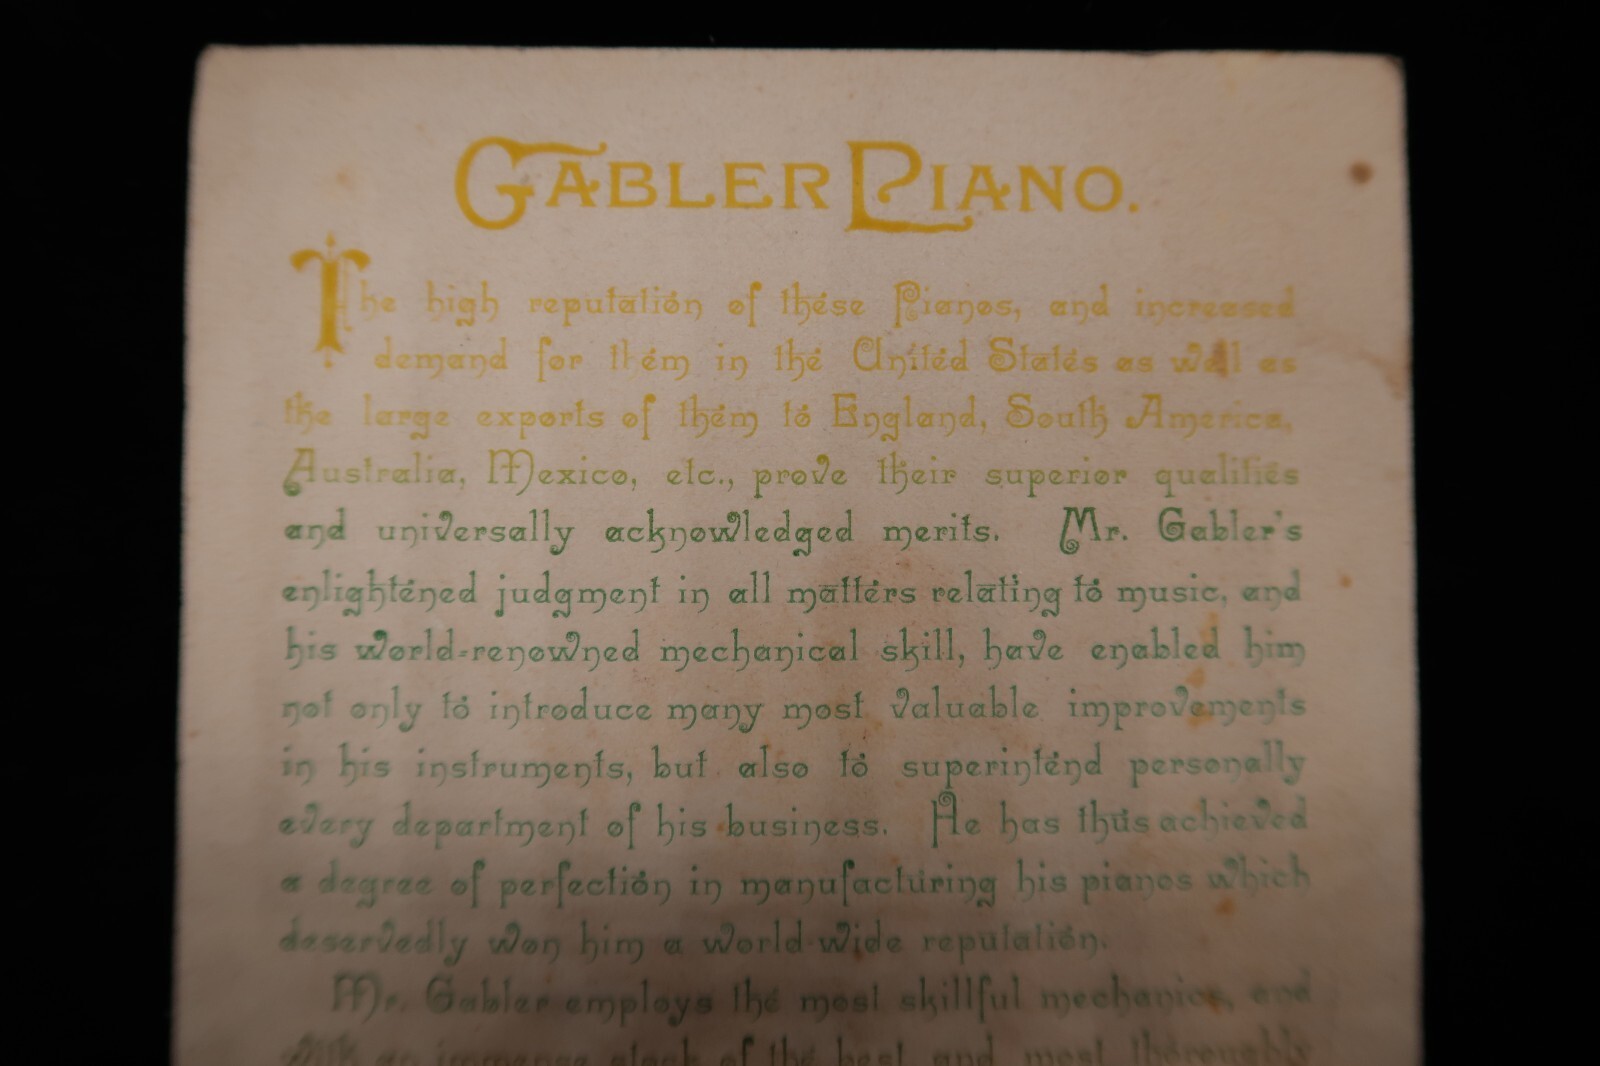 GABLER PIANO.
The high reputation of these Pianos, and increased
demand for them in the United States as well as
the large exports of them to England, South America,
Australia, Mexico, etc., prove their superior qualities
and universally acknowledged merits. Mr. Gabler's
enlightened judgment in all matters relating to music, and
his world-renowned mechanical skill, have enabled him
not only to introduce many most valuable improvements
in his instruments, but also to superintend personally
every department of his business. He has thus achieved
a degree of perfection in manufacturing his pianos which
deservedly won him a world-wide reputation.
Mr. Gabler employs the most skillful mechanics, and
with an immense stock of the best and most thoroughly